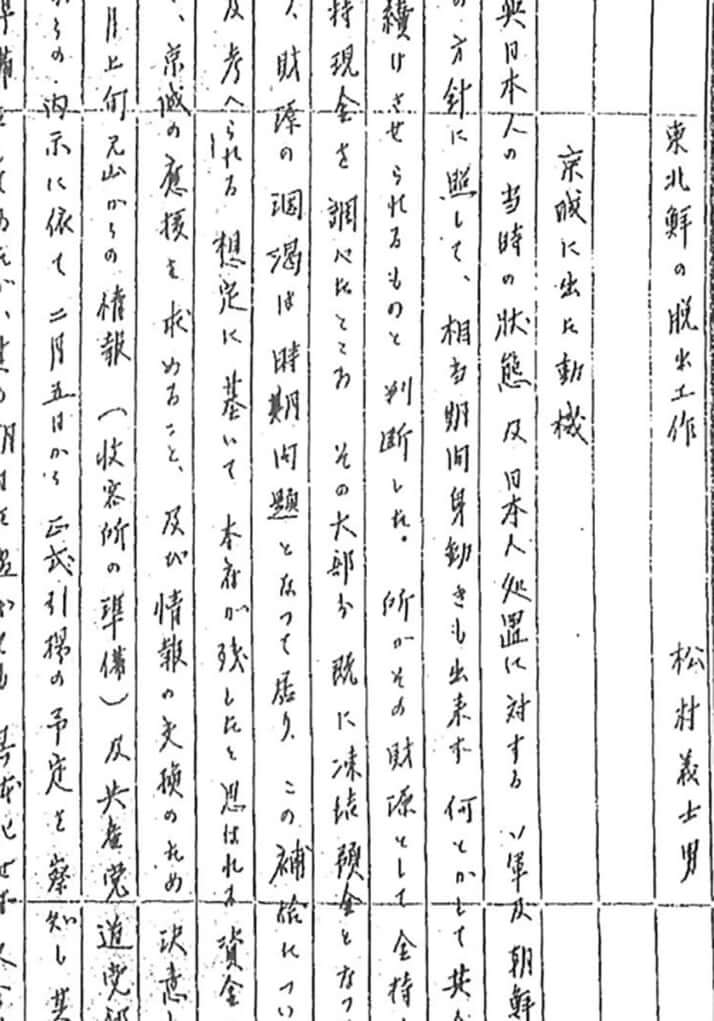 東北鮮の脱出工作　松村義士男
京城に出た動機
日本人の当時の状態及日本人処置に対するソ軍及朝鮮
方針に照して、相当期間身動きも出来ず何とかして其
續けさせられるものと判断した。所がその財源として金持
持現金を調べたところその大部分既に凍結預金となつ
財源の涸渇は時期問題となつて居り、この補給につい
及考へられる想定に基いて本府が残したと思はれる資金
、京城の應援を求めること、及び情報の交換のため決意し
月上旬元山からの情報（收容所の準備）及共産党道党部
らの内示に依て二月五日から正式引揚の予定を察知し其